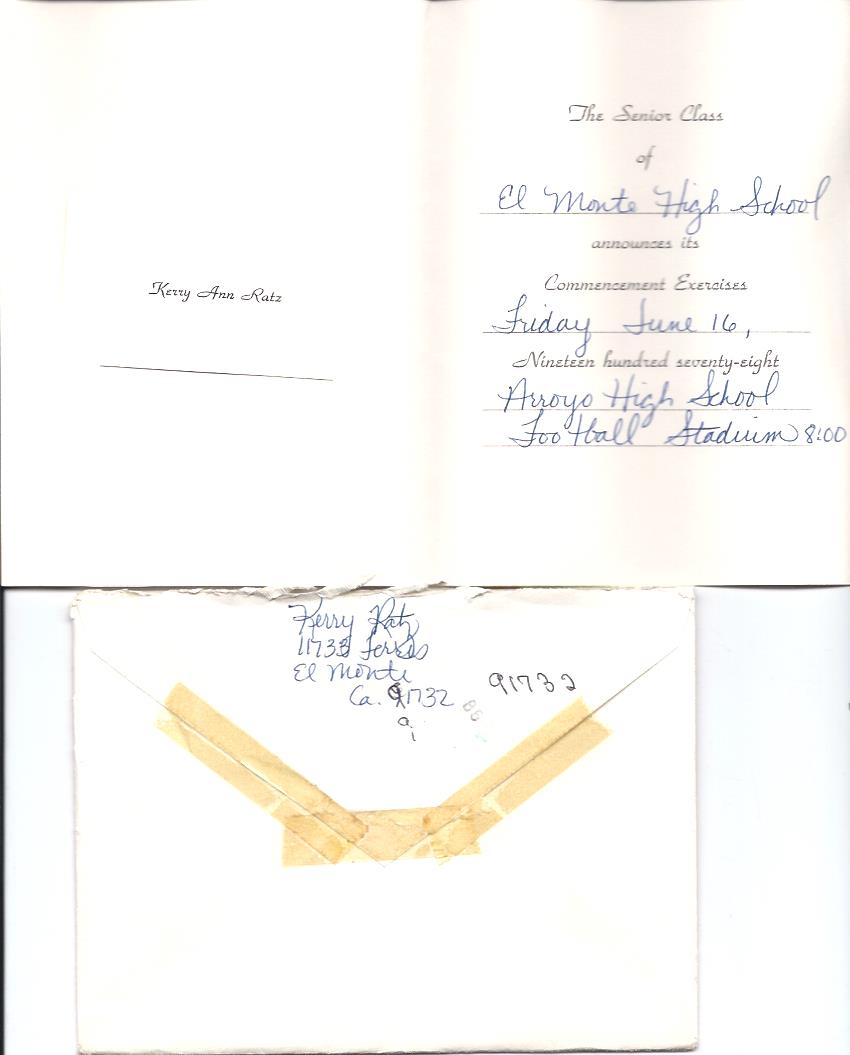 The Senior Class
of
El Monte High School
announces its
Commencement Exercises
Friday June 16,
Nineteen hundred seventy-eight
Arroyo High School
Football Stadium 8:00
Kerry Ann Ratz
Kerry Ratz
11733 Ferris
El Monte
Ca. 91732
91732